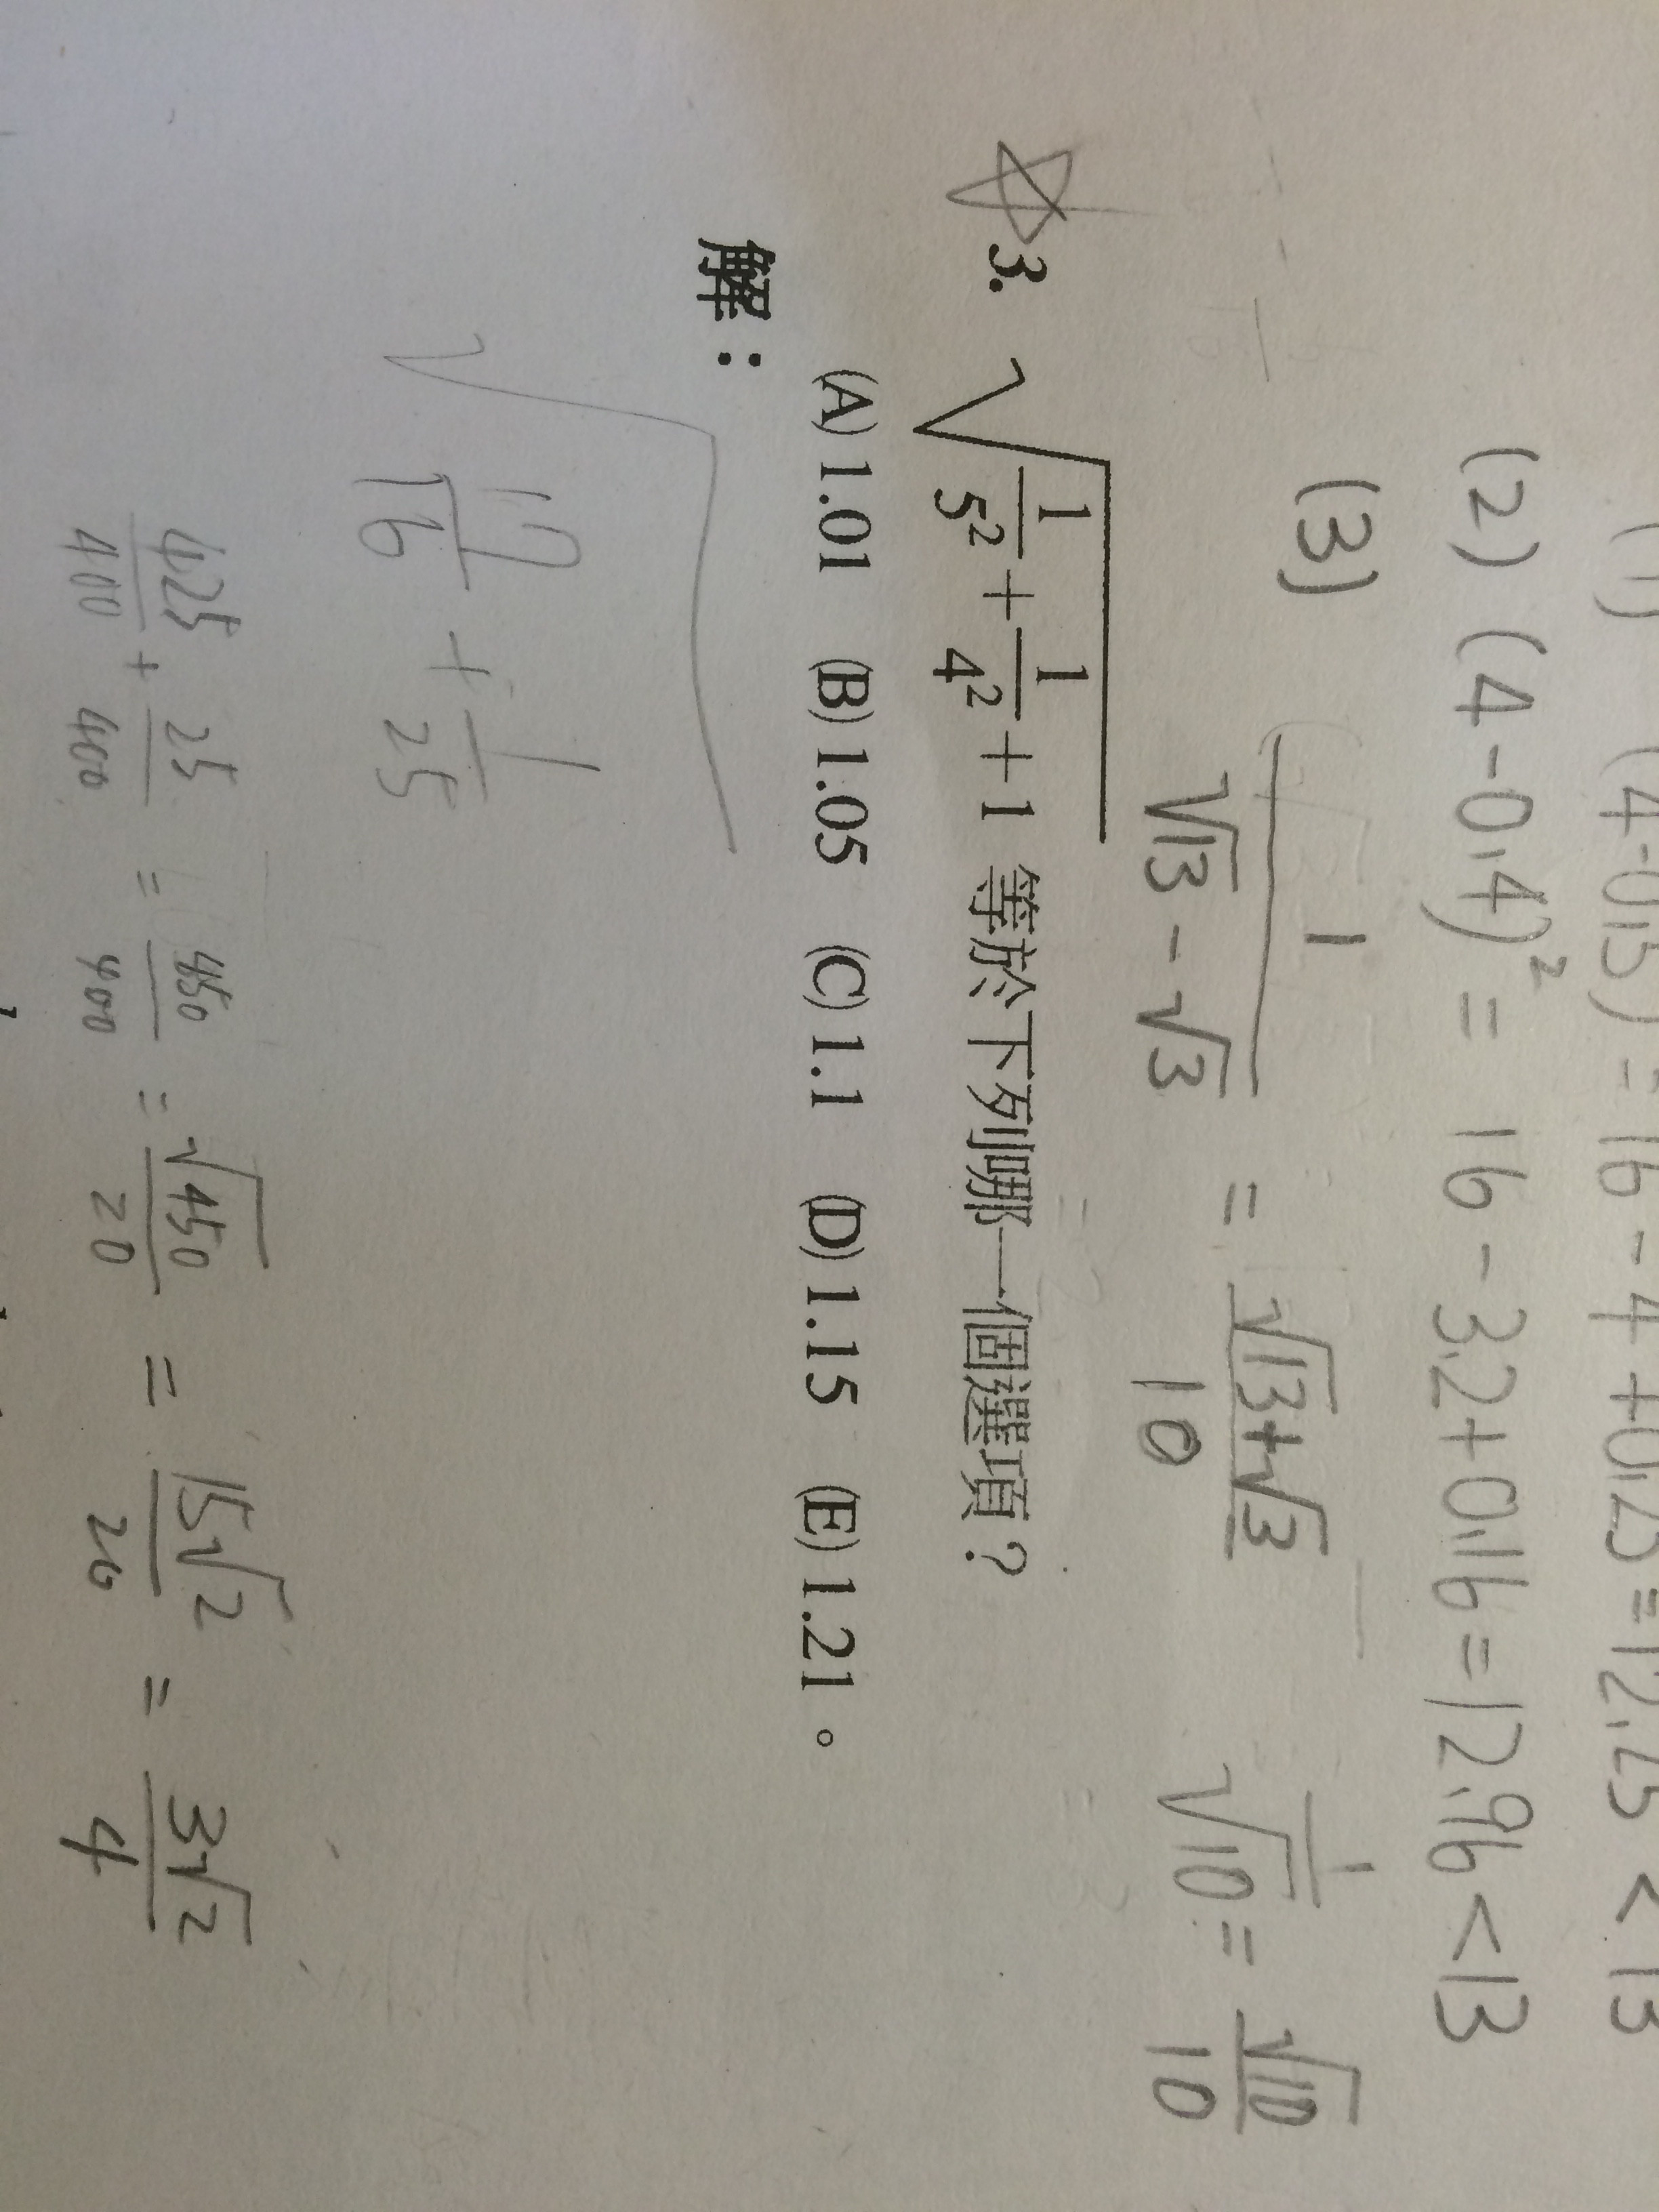 (4-0.5) = 16 - 4 + 0.25 = 12.25 < 13
(2) (4-0.4)² = 16 - 3.2 + 0.16 = 12.96 < 13
(3) 1/(√13 - √3) = (√13+√3)/10 1/√10 = √10/10
3. √(1/5² + 1/4² + 1) 等於下列哪一個選項？
(A) 1.01 (B) 1.05 (C) 1.1 (D) 1.15 (E) 1.21。
解：
√(17/16 + 1/25)
425/400 + 25/400 = 450/400 = √450/20 = 15√2/20 = 3√2/4